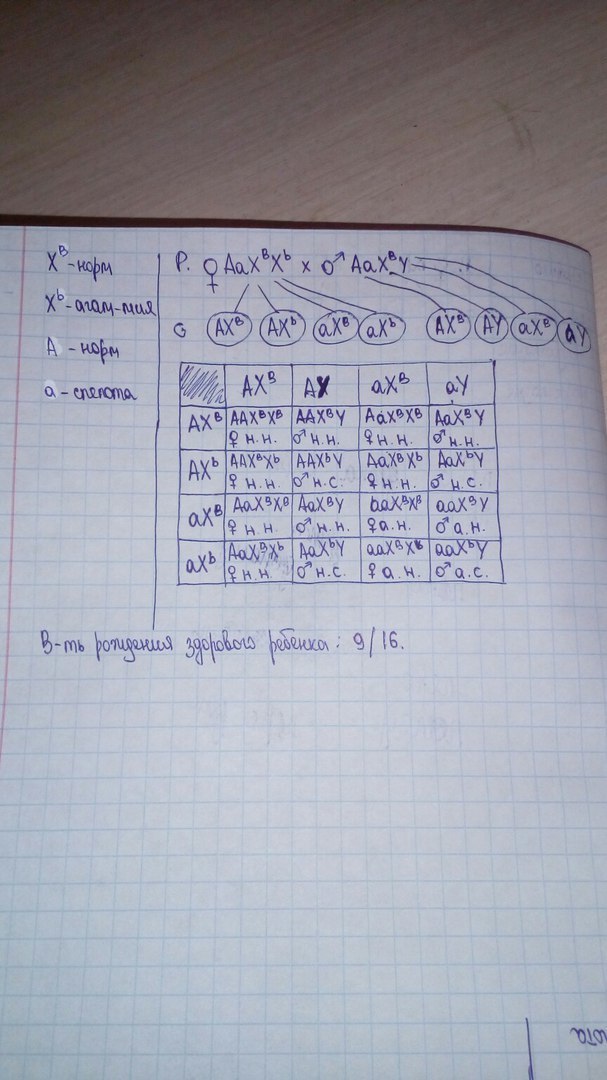 X^B - норм
X^b - агам-мия
A - норм
a - слепота
P. ♀ AaX^BX^b x ♂ AaX^BY
G AX^B AX^b aX^B aX^b AX^B AY aX^B aY
AX^B AY aX^B aY
AX^B AAX^BX^B ♀ н.н. AAX^BY ♂ н.н. AaX^BX^B ♀ н.н. AaX^BY ♂ н.н.
AX^b AAX^BX^b ♀ н.н. AAX^bY ♂ н.с. AaX^BX^b ♀ н.н. AaX^bY ♂ н.с.
aX^B AaX^BX^B ♀ н.н. AaX^BY ♂ н.н. aaX^BX^B ♀ а.н. aaX^BY ♂ а.н.
aX^b AaX^BX^b ♀ н.н. AaX^bY ♂ н.с. aaX^BX^b ♀ а.н. aaX^bY ♂ а.с.
В-ть рождения здорового ребенка: 9/16.